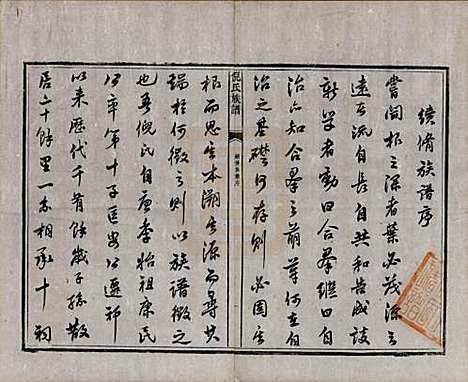 續脩族譜序
嘗聞根之深者葉必茂源之
遠者流自長自共和告成談
新學者動曰合羣繼曰自
治六知合羣之萌芽何在自
治之基礎何存則必因其
倪氏族譜
根而思其本溯其源而尋其
瑞於何徵之則以族譜徵之
也吾倪氏自唐季始祖康民
公率第十子匡公遷祁
以來歷代千有餘歲子孫散
居二十餘里一系相承十